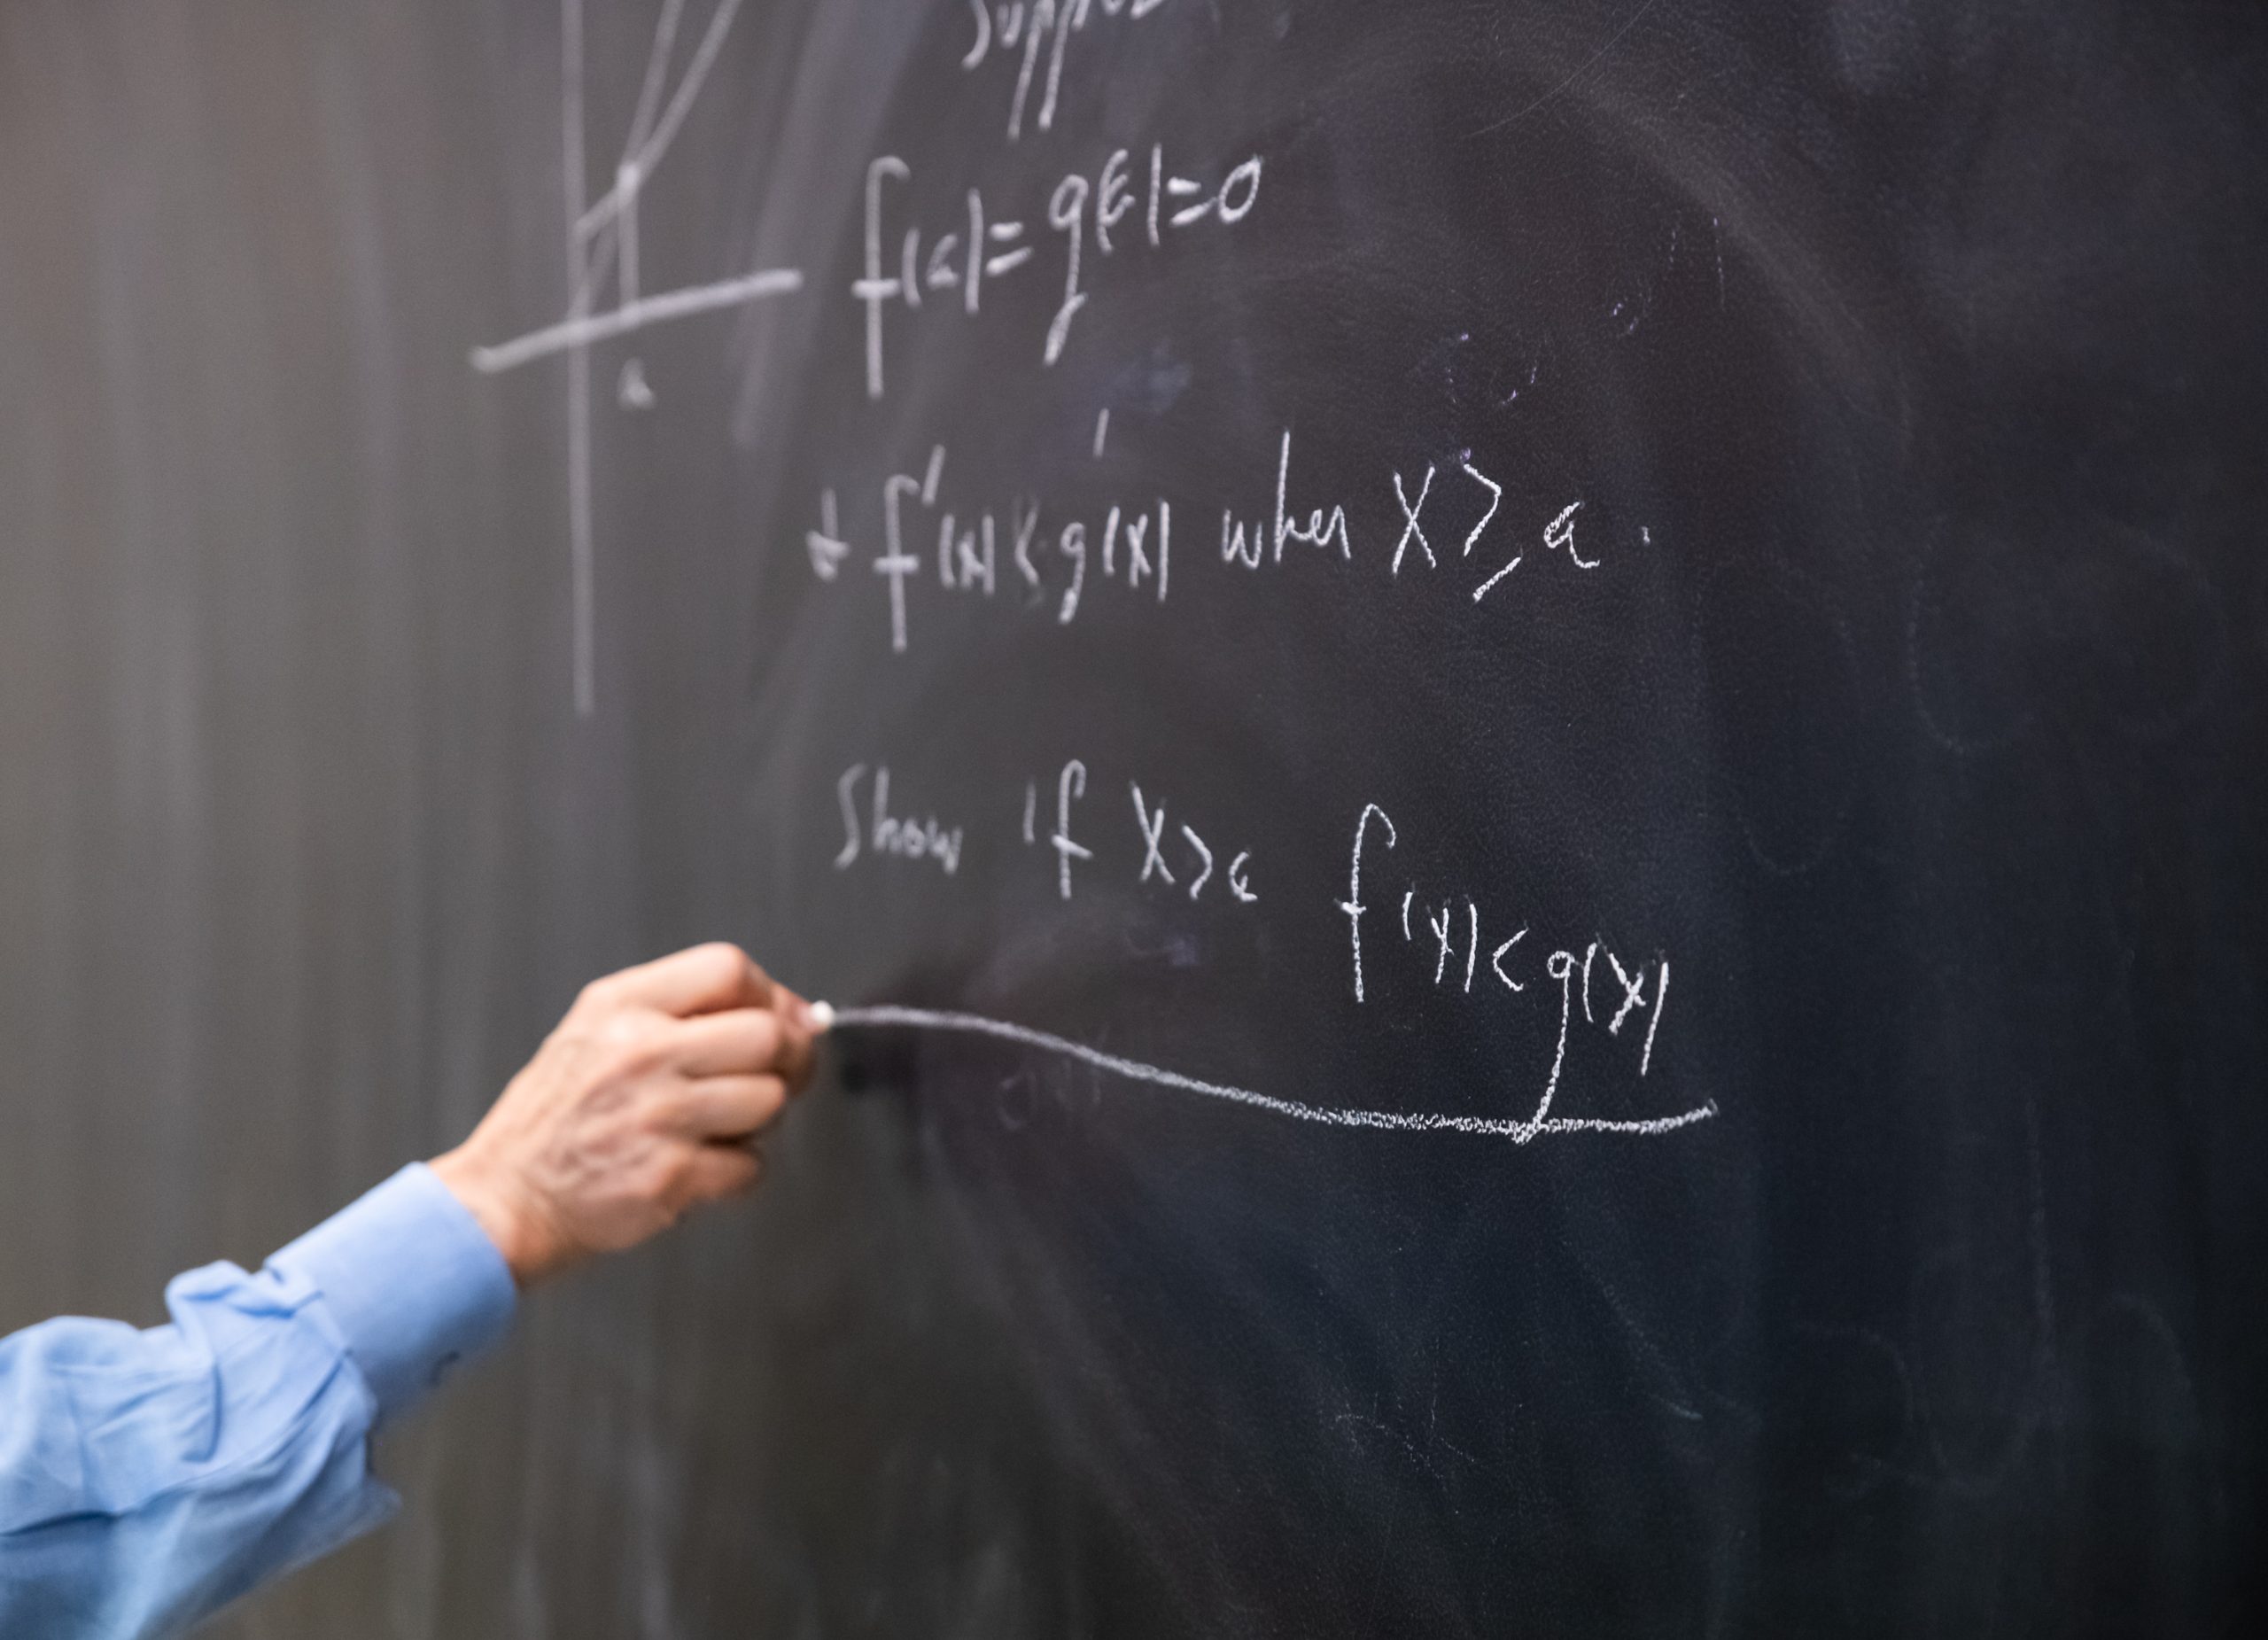 a
f(a)=g(a)=0
& f'(x)<g'(x) when x≥a.
Show if x>a f(x)<g(x)